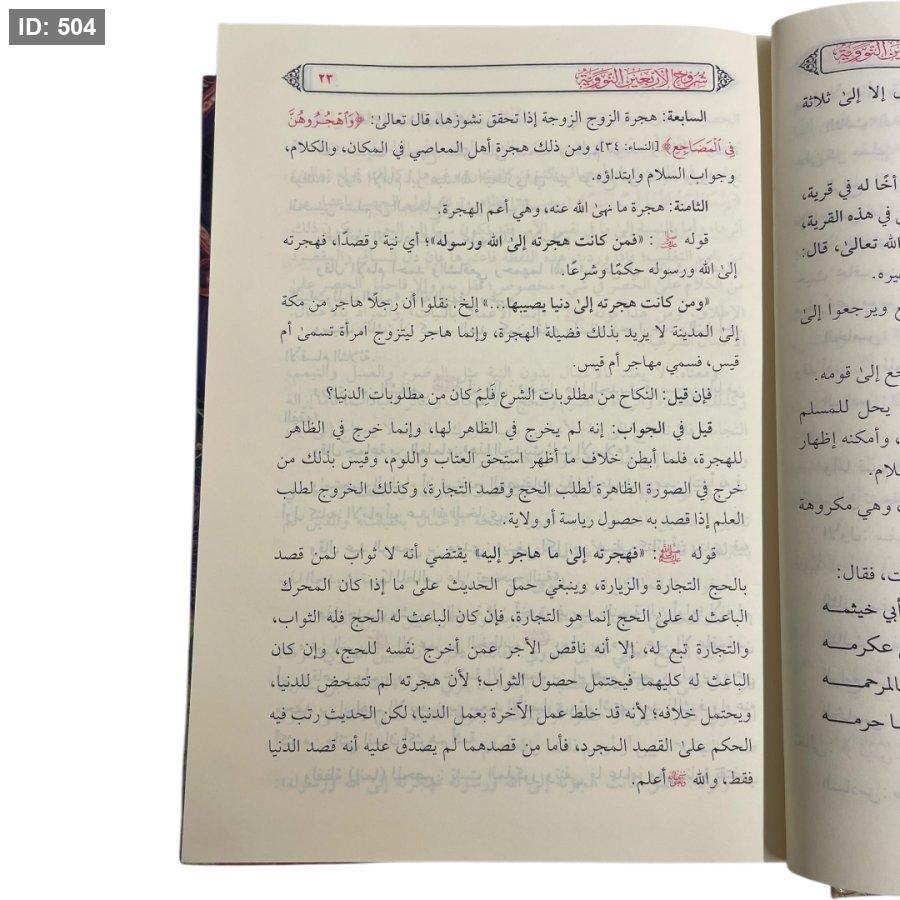 ID: 504
شروح الأربعين النووية
٢٣
السابعة: هجرة الزوج الزوجة إذا تحقق نشوزها، قال تعالى: ﴿وَاهْجُرُوهُنَّ
فِي الْمَضَاجِعِ﴾ [النساء: ٣٤]، ومن ذلك هجرة أهل المعاصي في المكان، والكلام،
وجواب السلام وابتداؤه.
الثامنة: هجرة ما نهى الله عنه، وهي أعم الهجرة.
قوله ﷺ : «فمن كانت هجرته إلى الله ورسوله»؛ أي نية وقصدًا، فهجرته
إلى الله ورسوله حكمًا وشرعًا.
«ومن كانت هجرته إلى دنيا يصيبها...» إلخ. نقلوا أن رجلًا هاجر من مكة
إلى المدينة لا يريد بذلك فضيلة الهجرة، وإنما هاجر ليتزوج امرأة تسمى أم
قيس، فسمي مهاجر أم قيس.
فإن قيل: النكاح من مطلوبات الشرع فَلِمَ كان من مطلوبات الدنيا؟
قيل في الجواب: إنه لم يخرج في الظاهر لها، وإنما خرج في الظاهر
للهجرة، فلما أبطن خلاف ما أظهر استحق العتاب واللوم، وقيس بذلك من
خرج في الصورة الظاهرة لطلب الحج وقصد التجارة، وكذلك الخروج لطلب
العلم إذا قصد به حصول رياسة أو ولاية.
قوله ﷺ: «فهجرته إلى ما هاجر إليه» يقتضي أنه لا ثواب لمن قصد
بالحج التجارة والزيارة، وينبغي حمل الحديث على ما إذا كان المحرك
الباعث له على الحج إنما هو التجارة، فإن كان الباعث له الحج فله الثواب،
والتجارة تبع له، إلا أنه ناقص الأجر عمن أخرج نفسه للحج، وإن كان
الباعث له كليهما فيحتمل حصول الثواب؛ لأن هجرته لم تتمحض للدنيا،
ويحتمل خلافه؛ لأنه قد خلط عمل الآخرة بعمل الدنيا، لكن الحديث رتب فيه
الحكم على القصد المجرد، فأما من قصدهما لم يصدق عليه أنه قصد الدنيا
فقط، والله أعلم.
إلا إلى ثلاثة
أخًا له في قرية،
في هذه القرية،
الله تعالى، قال:
ويرجعوا إلى
إلى قومه.
يحل للمسلم
، وأمكنه إظهار
، وهي مكروهة
، فقال:
أبي خيثمه
عكرمه
بالمرحمه
حرمه